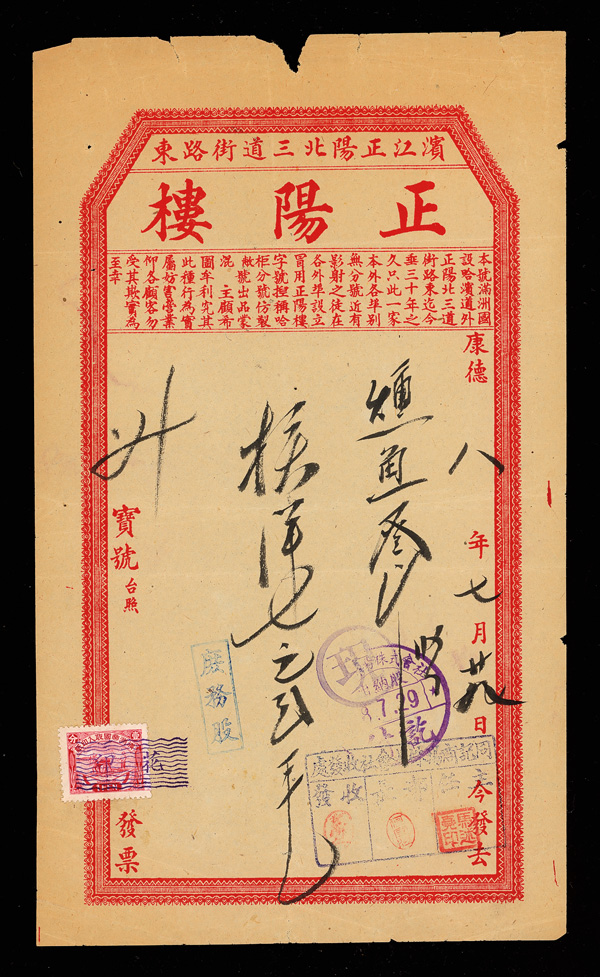 濱江正陽北三道街路東
正陽樓
本號滿洲國
設哈濱道外
正陽北三道
街路東迄今
垂三十年之
久只此一家
本外各準別
無分號近有
影射之徒在
各外準設立
冒用正陽樓
字號揑稱哈
柜分號仿製
敝號出品蒙
混 主顧希
圖牟利先其
此種行為實
屬妨害營業
仰各顧客勿
受其欺實為
至幸
康德八年七月廿九日今發去
洋七元貳毛
寶號台照
發票
庶務股
株式會社
8.7.29
收發處
發 收